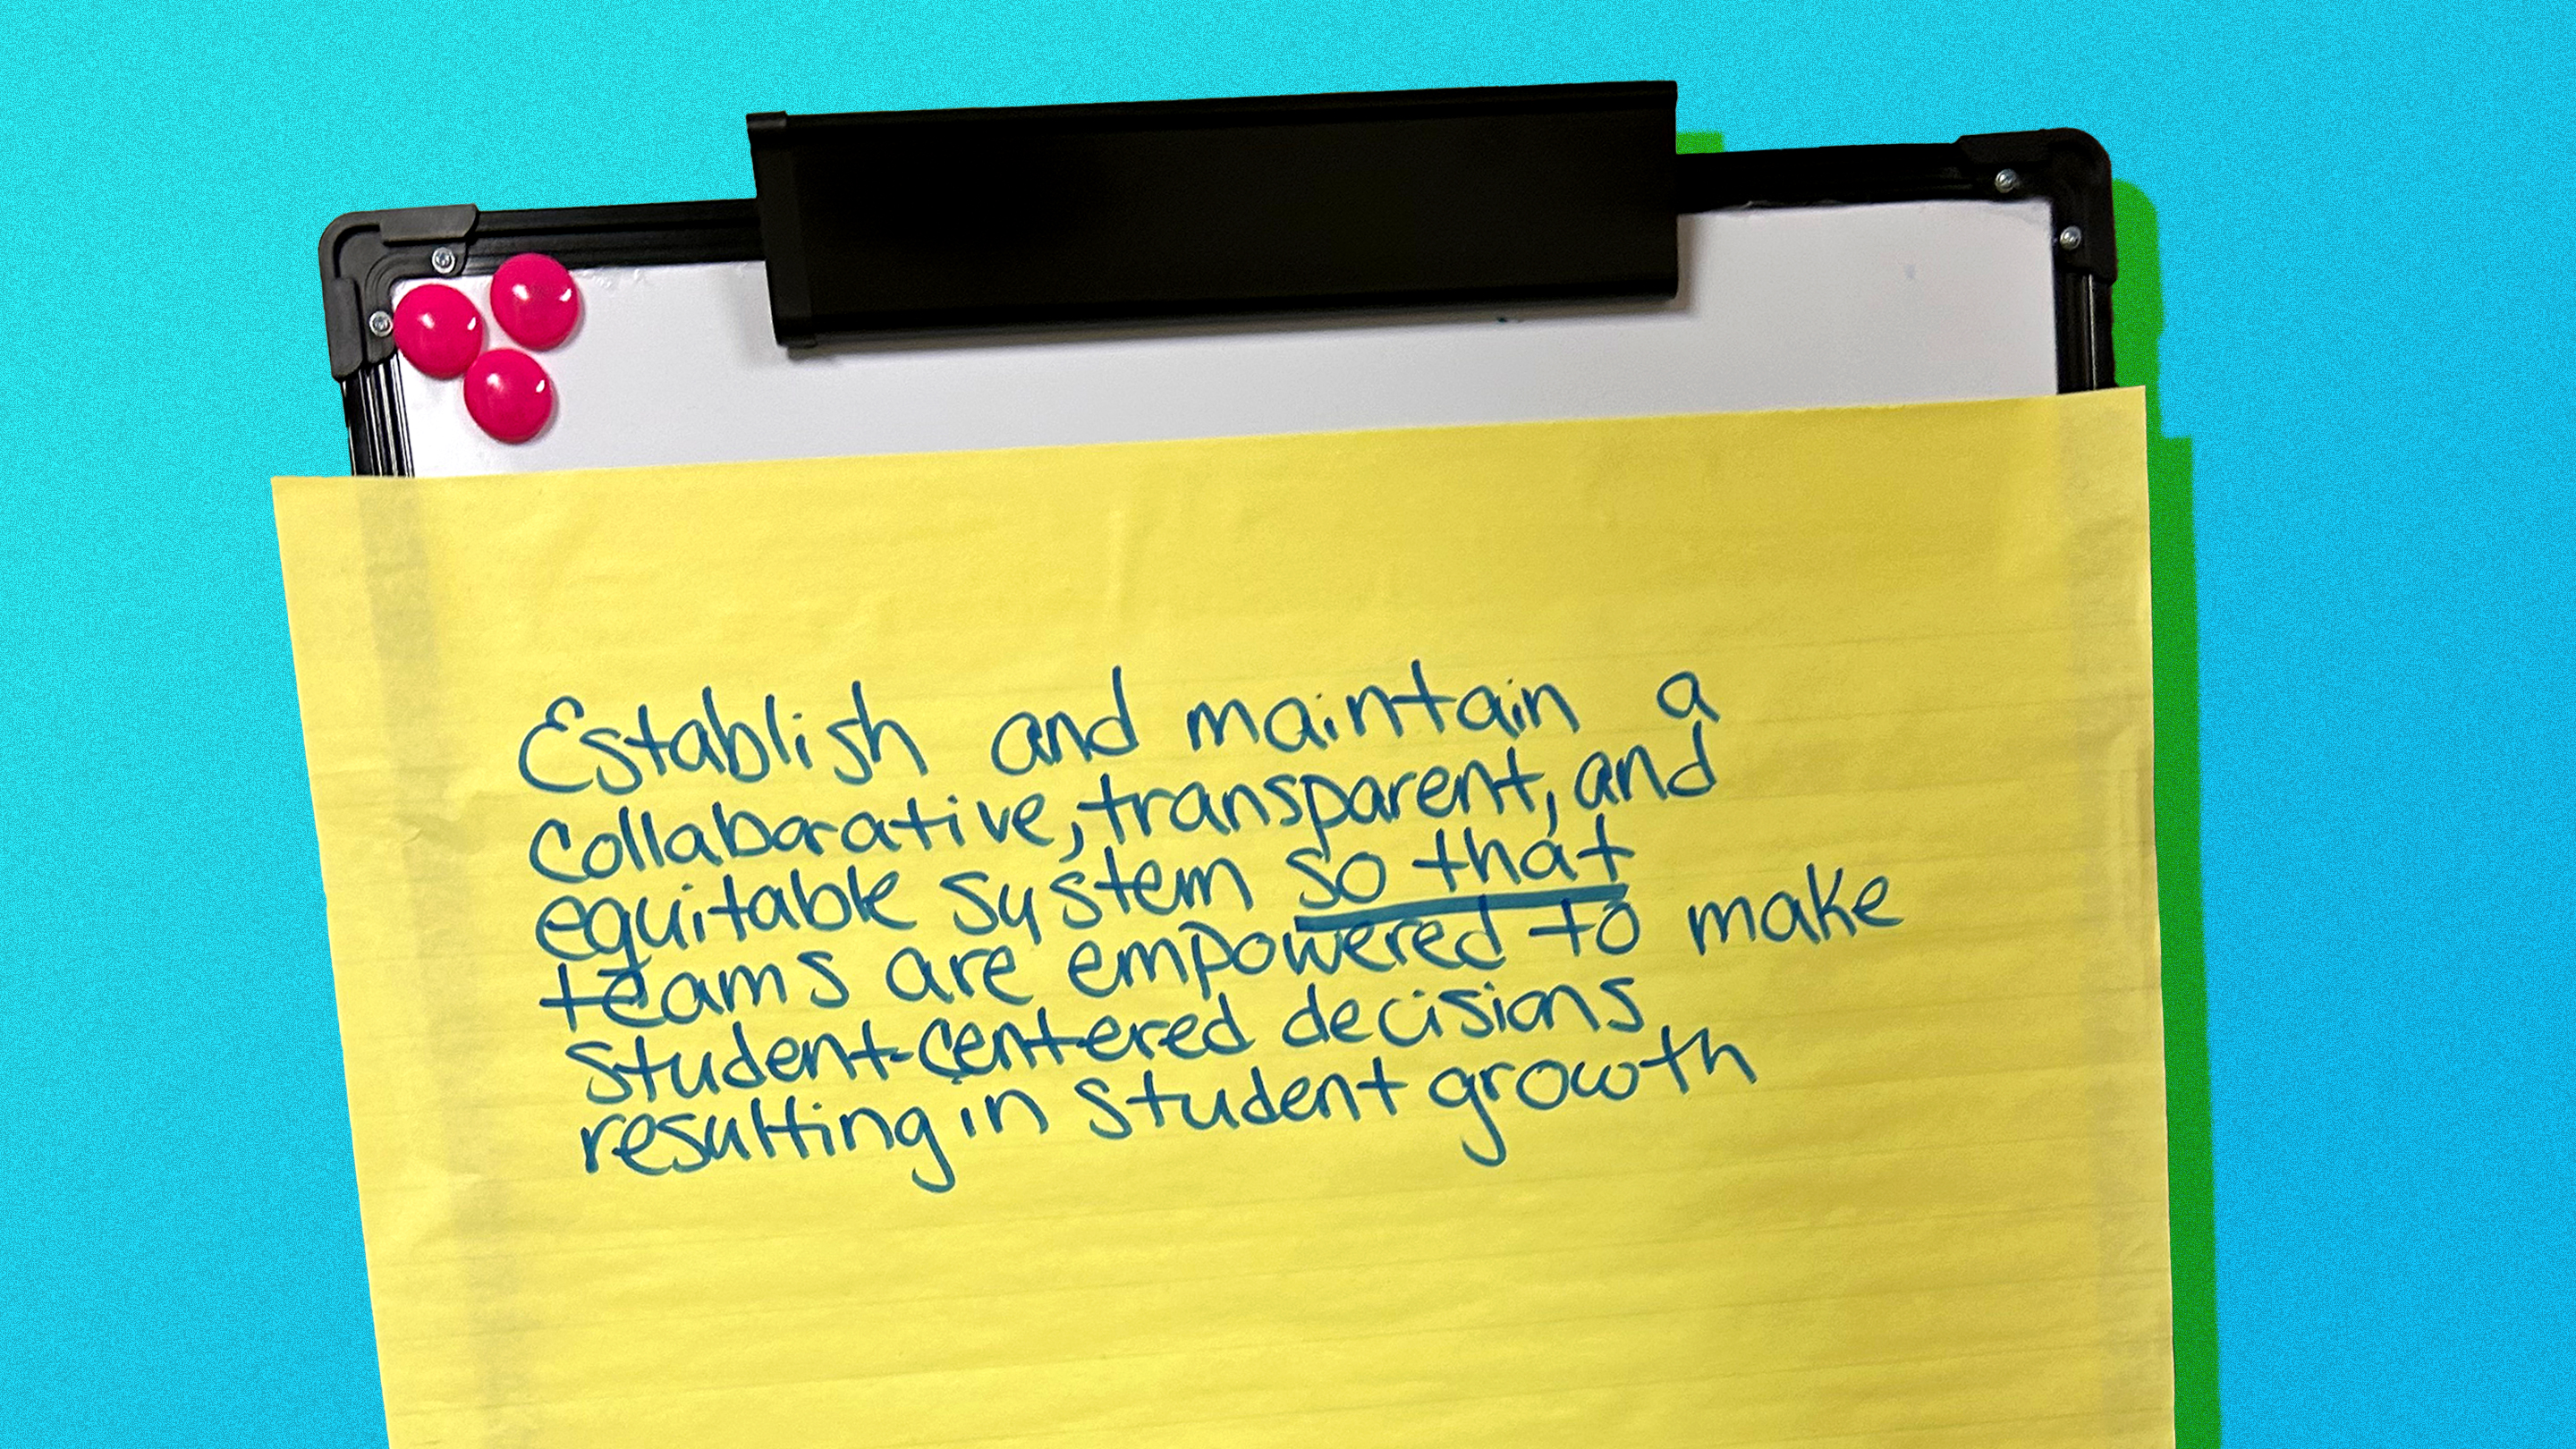 Establish and maintain a
collaborative, transparent, and
equitable system so that
teams are empowered to make
student-centered decisions
resulting in student growth